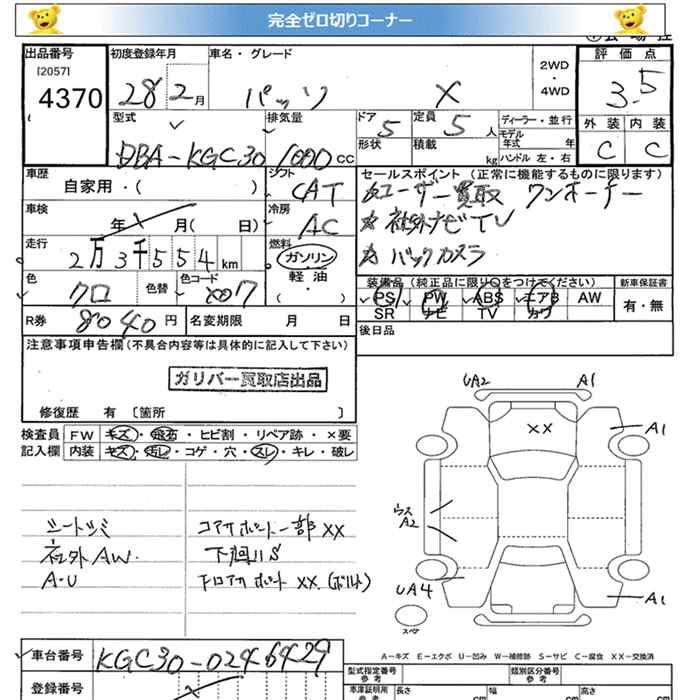 完全ゼロ切りコーナー
出品番号
[2057]
4370
初度登録年月
28 2月
車名・グレード
パッソ X
2WD
・
4WD
評価点
3.5
外装 内装
C C
型式
DBA-KGC30
排気量
1000 CC
ドア
5
定員
5 人
形状
積載
kg
ディーラー・並行
モデル
年式 年
ハンドル 左・右
車歴
自家用・( )
シフト
CAT
セールスポイント (正常に機能するものに限ります)
☆ユーザー買取 ワンオーナー
☆社外ナビTV
☆バックカメラ
車検
年 月( 日)
冷房
AC
走行
2万3千554km
燃料
ガソリン
軽・油
色
クロ
色替
色コード
X07
装備品 (純正品に限り○をつけてください)
PS PW ABS エアB AW
SR ナビ TV カワ
新車保証書
有・無
R券
8040円
名変期限 月 日
後日品
注意事項申告欄(不具合内容等は具体的に記入して下さい)
ガリバー買取店出品
修復歴 有 〔箇所 〕
検査員
記入欄
FW キズ・飛石・ヒビ割・リペア跡・×要
内装 キズ・汚レ・コゲ・穴・スレ・キレ・破レ
シートシミ
社外AW.
A・U
コアサポート一部XX
下廻りS
下コアサポートXX.(ボルト)
UA2 A1
XX
A1
ウス
A2
UA4
A1
スペア
A-キズ E-エクボ U-凹み W-補修跡 S-サビ C-腐食 XX-交換済
車台番号
KGC30-0246429
登録番号
型式指定番号
参考
類別区分番号
参考
車庫証明用
参考
長さ cm
幅 cm
高さ cm